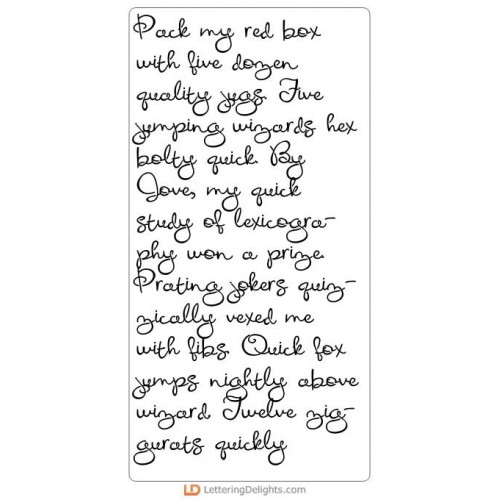 Pack my red box
with five dozen
quality jugs. Five
jumping wizards hex
bolty quick. By
Jove, my quick
study of lexicogra-
phy won a prize.
Prating jokers quiz-
zically vexed me
with fibs. Quick fox
jumps nightly above
wizard. Twelve zig-
gurats quickly
LD LetteringDelights.com